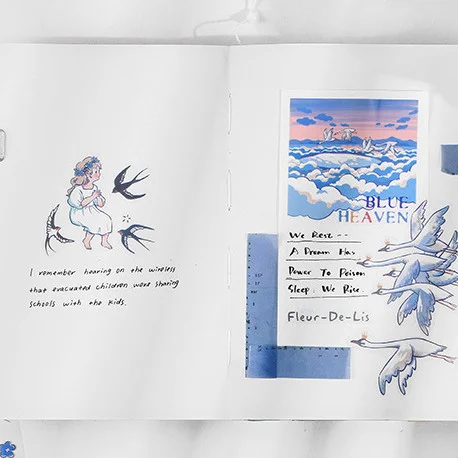 I remember hearing on the wireless
that evacuated children were sharing
schools with the kids.
BLUE
HEAVEN
We Rest --
A Dream Has
Power To Poison
Sleep; We Rise.
Fleur-De-Lis